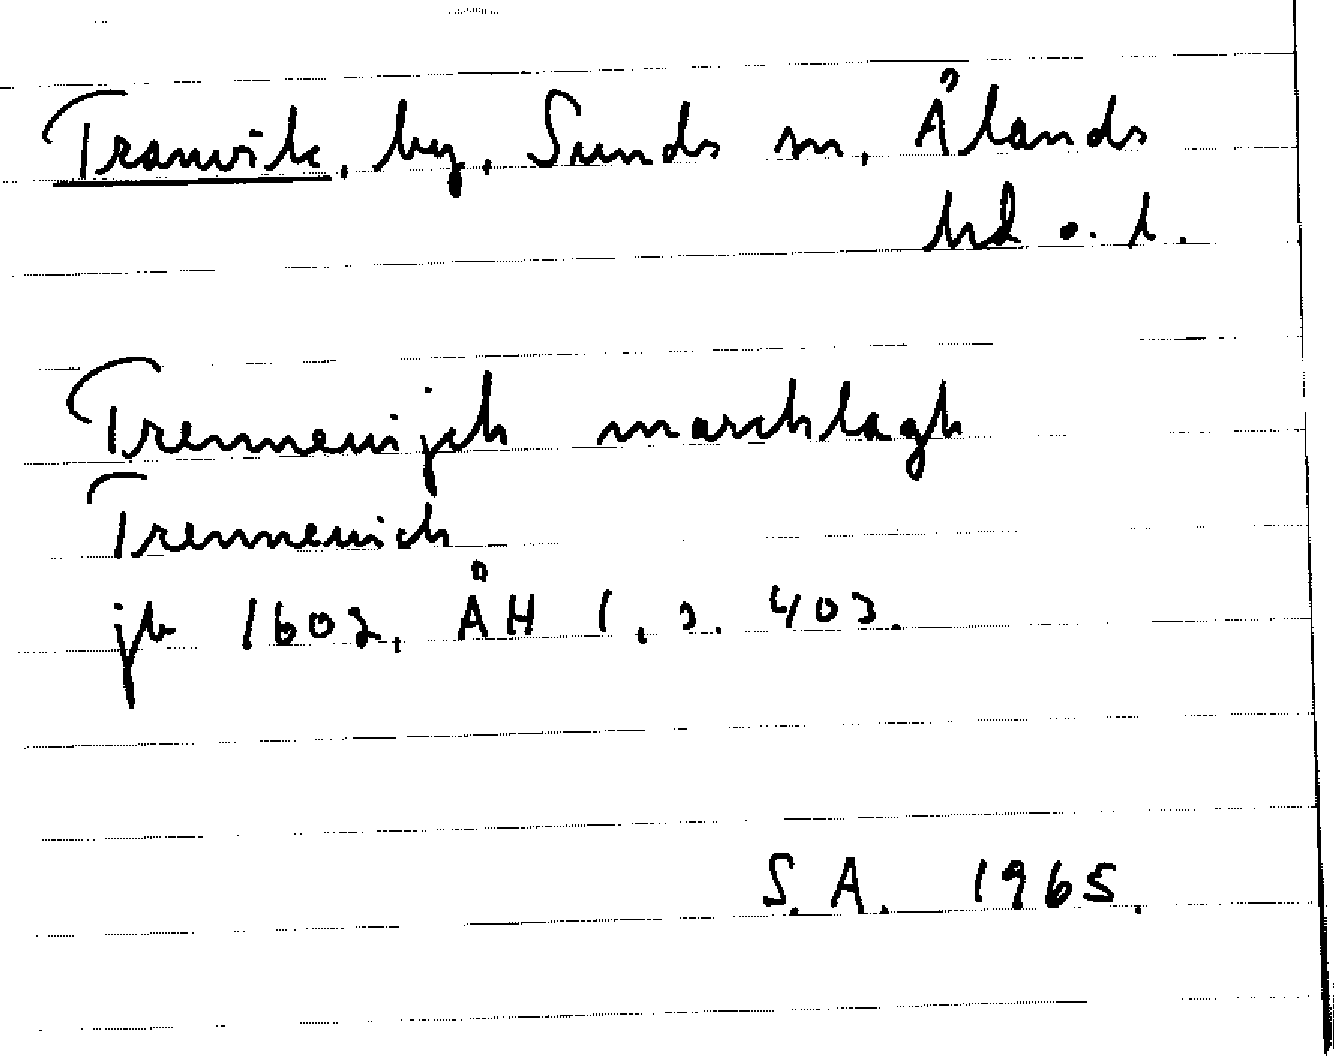 Tranvik, by, Sunds sn, Ålands
hd o. l.
Trennenijch marchlagh
Trennewich
jb 1602, ÅH 1, s. 403.
S. A. 1965.